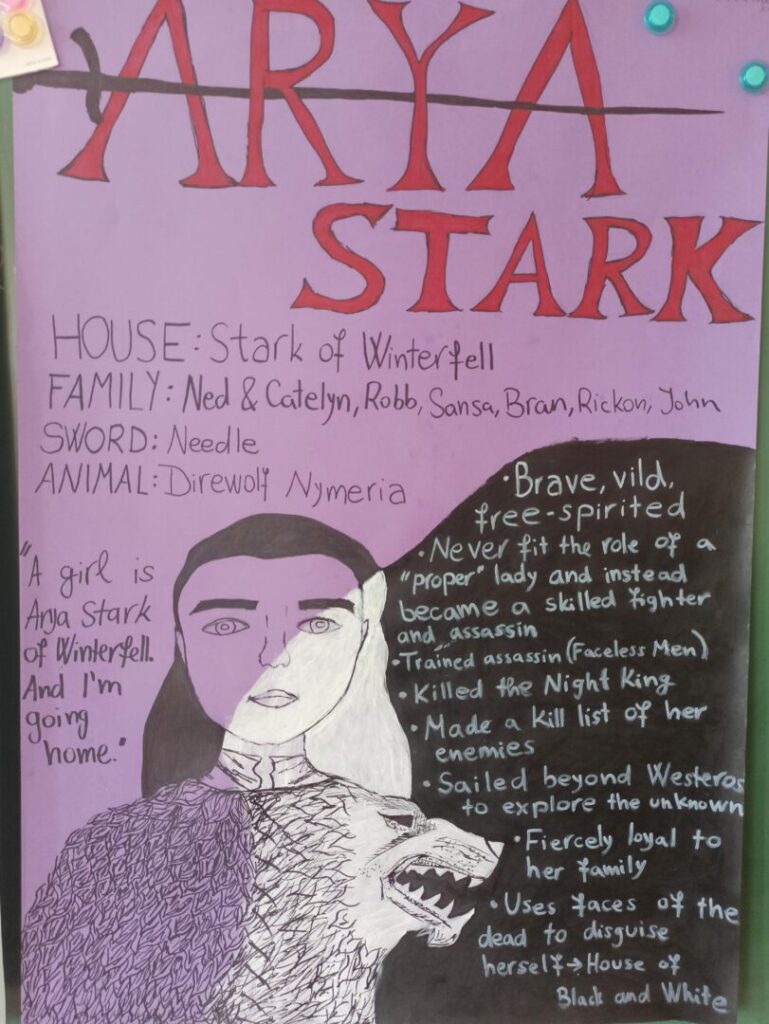 ARYA
STARK
HOUSE: Stark of Winterfell
FAMILY: Ned & Catelyn, Robb, Sansa, Bran, Rickon, John
SWORD: Needle
ANIMAL: Direwolf Nymeria
"A girl is
Arya Stark
of Winterfell.
And I'm
going
home."
• Brave, vild,
free-spirited
• Never fit the role of a
"proper" lady and instead
became a skilled fighter
and assassin
• Trained assassin (Faceless Men)
• Killed the Night King
• Made a kill list of her
enemies
• Sailed beyond Westeros
to explore the unknown
• Fiercely loyal to
her family
• Uses faces of the
dead to disguise
herself → House of
Black and White